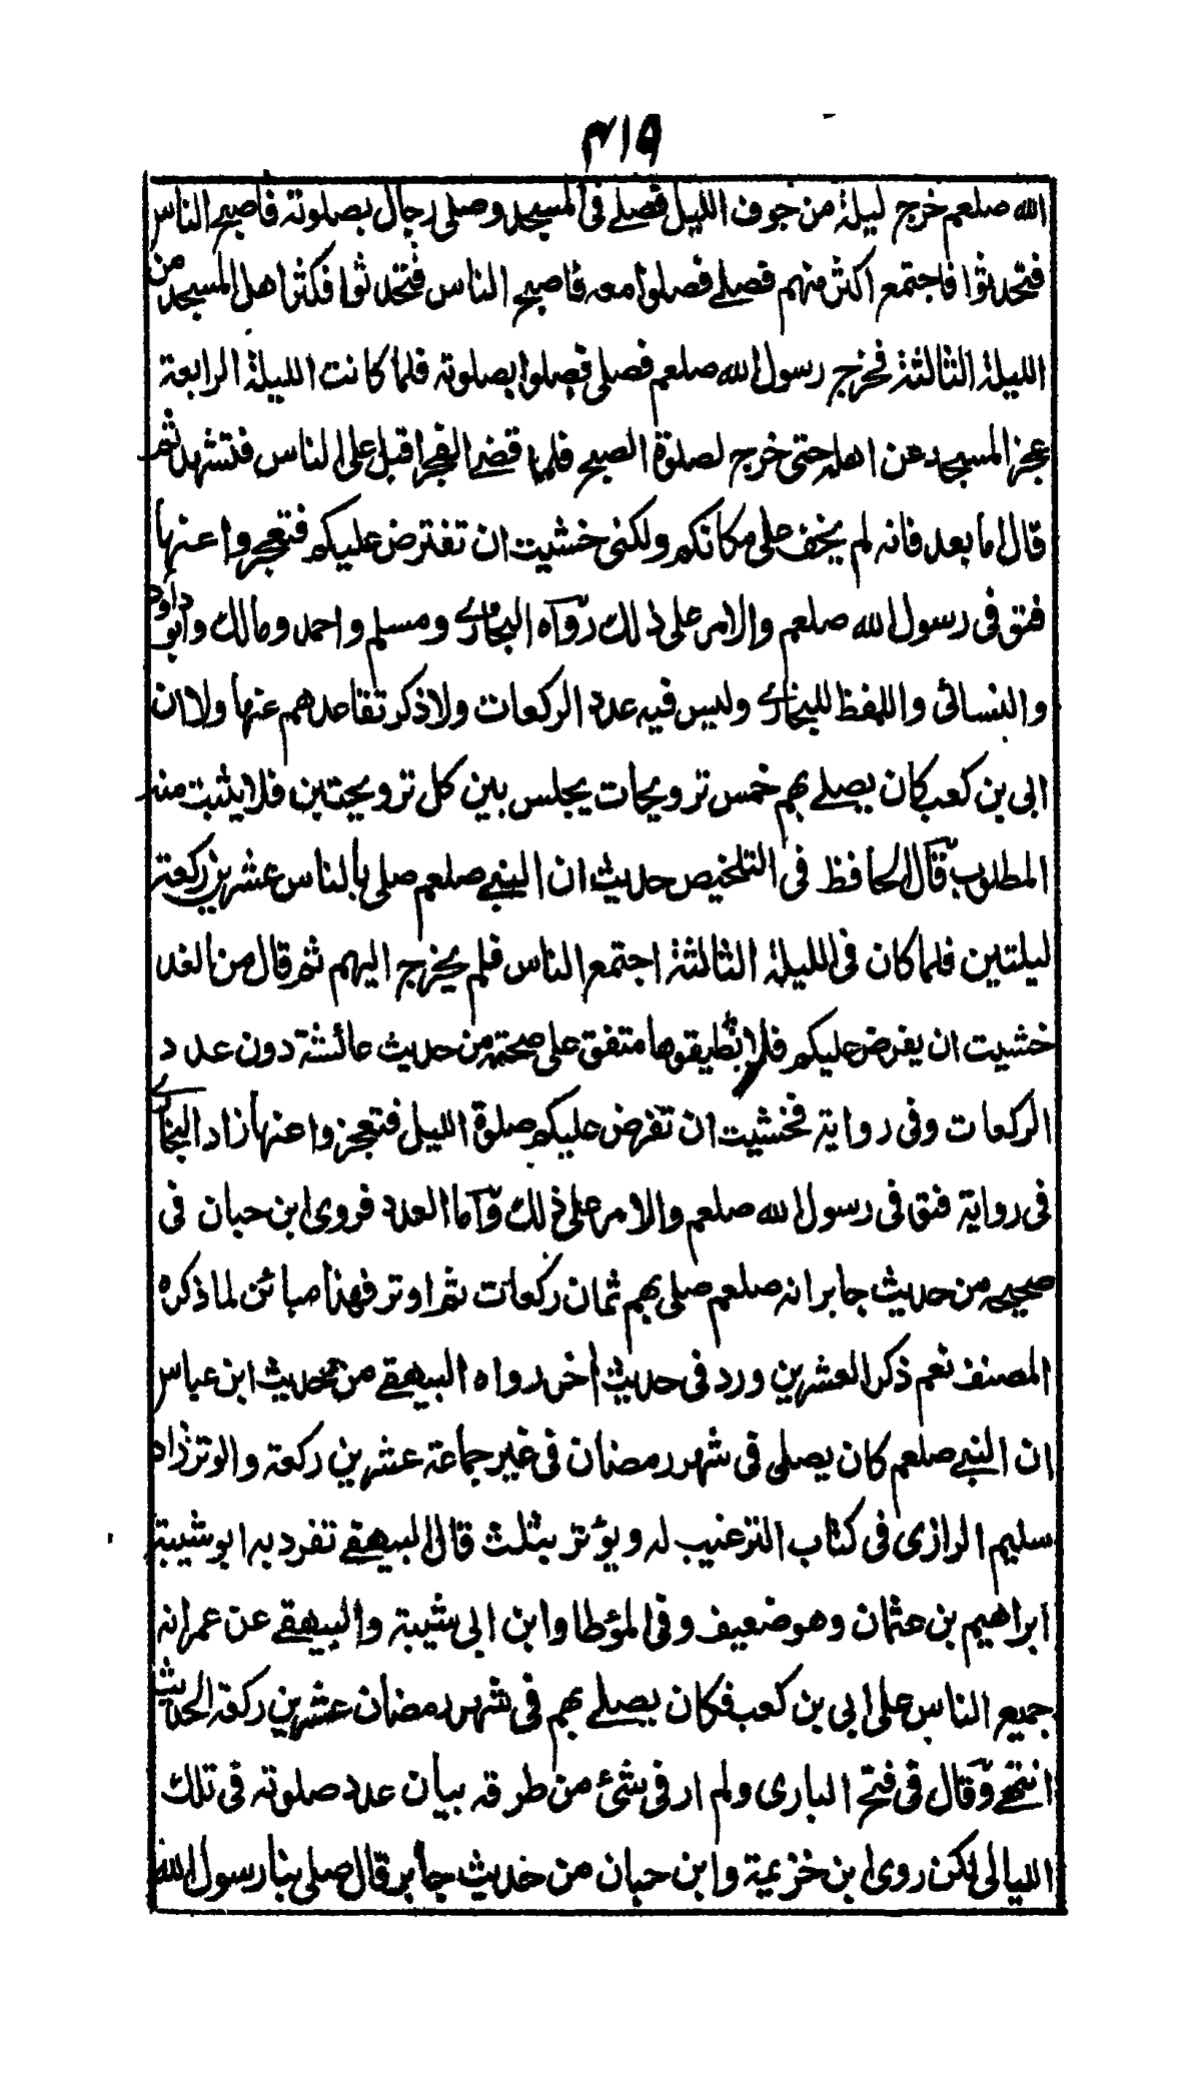 ۴۱۵
الله صلعم خرج ليلة من جوف الليل فصلے فی المسجد وصلى رجال بصلوته فاصبح الناس
فتحدثوا فاجتمع اكثر منهم فصلے فصلوا معه فاصبح الناس فتحدثوا فكثر اهل المسجد من
الليلة الثالثة فخرج رسول الله صلعم فصلى فصلوا بصلوته فلما كانت الليلة الرابعة
عجز المسجد عن اهله حتى خرج لصلوة الصبح فلما قضے الفجر اقبل على الناس فتشهد ثم
قال اما بعد فانه لم يخف على مكانكم ولكنى خشيت ان تفترض عليكم فتعجزوا عنها
فتوفى رسول الله صلعم والامر على ذلك رواه البخارے ومسلم واحمد ومالك وابو داود
والنسائى واللفظ للبخارے وليس فيه عدد الركعات ولا ذكر تقاعدهم عنها ولا ان
ابى بن كعب كان يصلے بهم خمس ترويحات يجلس بين كل ترويحتين فلا يثبت منه
المطلوب قال الحافظ فى التلخيص حديث ان النبے صلعم صلى بالناس عشرين ركعة
ليلتين فلما كان فى الليلة الثالثة اجتمع الناس فلم يخرج اليهم ثم قال من الغد
خشيت ان يفرض عليكم فلا تطيقوها متفق على صحته من حديث عائشة دون عدد
الركعات وفى رواية فخشيت ان تفرض عليكم صلوة الليل فتعجزوا عنها زاد البخارے
فى رواية فتوفى رسول الله صلعم والامر على ذلك واما العدد فروى ابن حبان فى
صحيحه من حديث جابر انه صلعم صلى بهم ثمان ركعات ثم اوتر فهذا مبائن لما ذكره
المصنف نعم ذكر العشرين ورد فى حديث اخر رواه البيهقے من حديث ابن عباس
ان النبے صلعم كان يصلى فى شهر رمضان فى غير جماعة عشرين ركعة والوتر زاد
سليم الرازى فى كتاب الترغيب له ويوتر بثلث قال البيهقے تفرد به ابو شيبة
ابراهيم بن عثمان وهو ضعيف وفى المؤطا وابن ابى شيبة والبيهقے عن عمر انه
جميع الناس على ابى بن كعب فكان يصلے بهم فى شهر رمضان عشرين ركعة الحديث
انتهے وقال فى فتح البارى ولم ار فى شئ من طرقه بيان عدد صلوته فى تلك
الليالى لكن روى ابن خزيمة وابن حبان من حديث جابر قال صلى بنا رسول الله